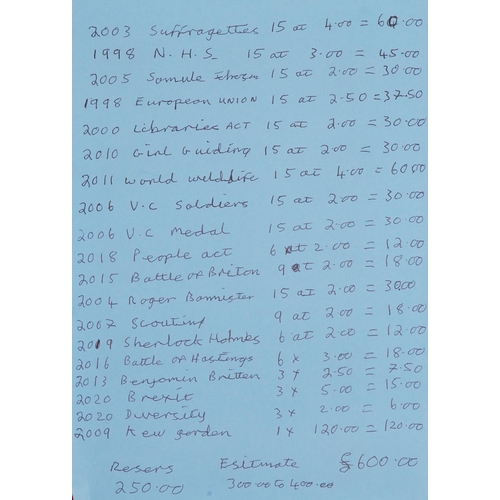 2003 Suffragettes 15 at 4.00 = 60.00
1998 N.H.S 15 at 3.00 = 45.00
2005 Samule 15 at 2.00 = 30.00
1998 European UNION 15 at 2.50 = 37.50
2000 Libraries ACT 15 at 2.00 = 30.00
2010 Girl Guiding 15 at 2.00 = 30.00
2011 world 15 at 4.00 = 60.00
2006 V.C Soldiers 15 at 2.00 = 30.00
2006 V.C Medal 15 at 2.00 = 30.00
2018 People act 6 at 2.00 = 12.00
2015 Battle of Briton 9 at 2.00 = 18.00
2004 Roger Bannister 15 at 2.00 = 30.00
2007 Scouting 9 at 2.00 = 18.00
2019 Sherlock Holmes 6 at 2.00 = 12.00
2016 Battle of Hastings 6 x 3.00 = 18.00
2013 Benjamin Britten 3 x 2.50 = 7.50
2020 Brexit 3 x 5.00 = 15.00
2020 Diversity 3 x 2.00 = 6.00
2009 Kew garden 1 x 120.00 = 120.00
Resers Esitmate £600.00
250.00 300.00 to 400.00